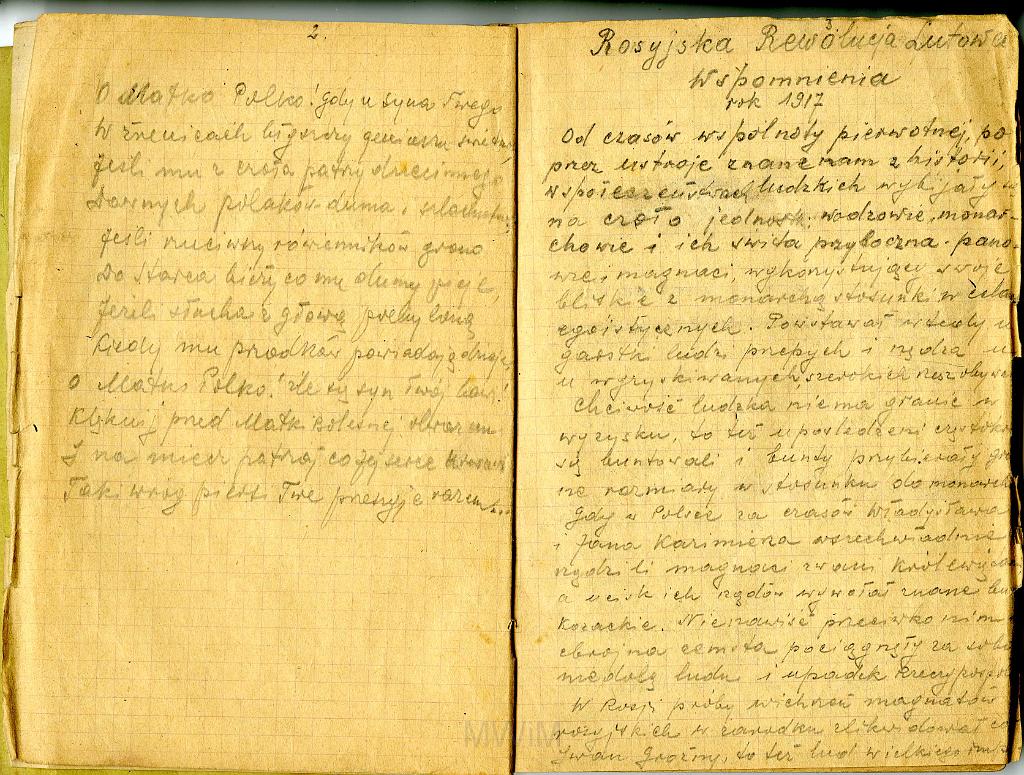 2.
O Matko Polko! gdy u syna Twego
W źrenicach błyszczy geniuszu
Jeśli mu z czoła patrzy dziecinnego
Dawnych polaków duma i
Jeśli rzuciwszy rówienników grono
Do starca bieży co mu dumy pieje,
Jeżeli słucha z głową pochyloną
Kiedy mu przodków powiadają
O Matko Polko! źle się syn Twój bawi!
Klęknij przed Matki Bolesnej obrazem
I na miecz patrzaj co Jej serce
Taki wróg piersi Twe przeszyje razem...
3
Rosyjska Rewolucja Lutowa
Wspomnienia
rok 1917
Od czasów wspólnoty pierwotnej, po
przez ustroje znane nam z historii,
w społeczeństwach ludzkich wybijały
na czoło jednostk. wodzowie, monar-
chowie i ich świta przyboczna - pano-
wie i magnaci, wykorzystujący swoje
bliskie z monarchą stosunki w
egoistycznych. Powstawał wtedy u
garstki ludzi przepych i nędza
u wyzyskiwanych szerokich rzesz
Chciwość ludzka niema granic w
wyzysku, to też uposledzeni
się buntowali i bunty przybierały
ne rozmiary w stosunku do
Gdy w Polsce za czasów Władysława
i Jana Kazimierza wszechwładnie
rządzili magnaci zwani
a ucisk ich rządów wywołał znane
kozackie. Nienawiść przeciwko nim
zbrojna zemsta pociągnęły za sobą
niedolę ludu i upadek
W Rosji próby wichrzeń magnatów
rosyjskich w zarodku zlikwidował
Iwan Groźny, to też lud wielkiego
MWiM